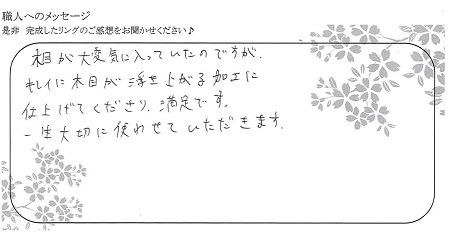 職人へのメッセージ
是非 完成したリングのご感想をお聞かせください♪
木目が大変気に入っていたのですが、
キレイに木目が浮き上がる加工に
仕上げてくださり、満足です。
一生大切に使わせていただきます。